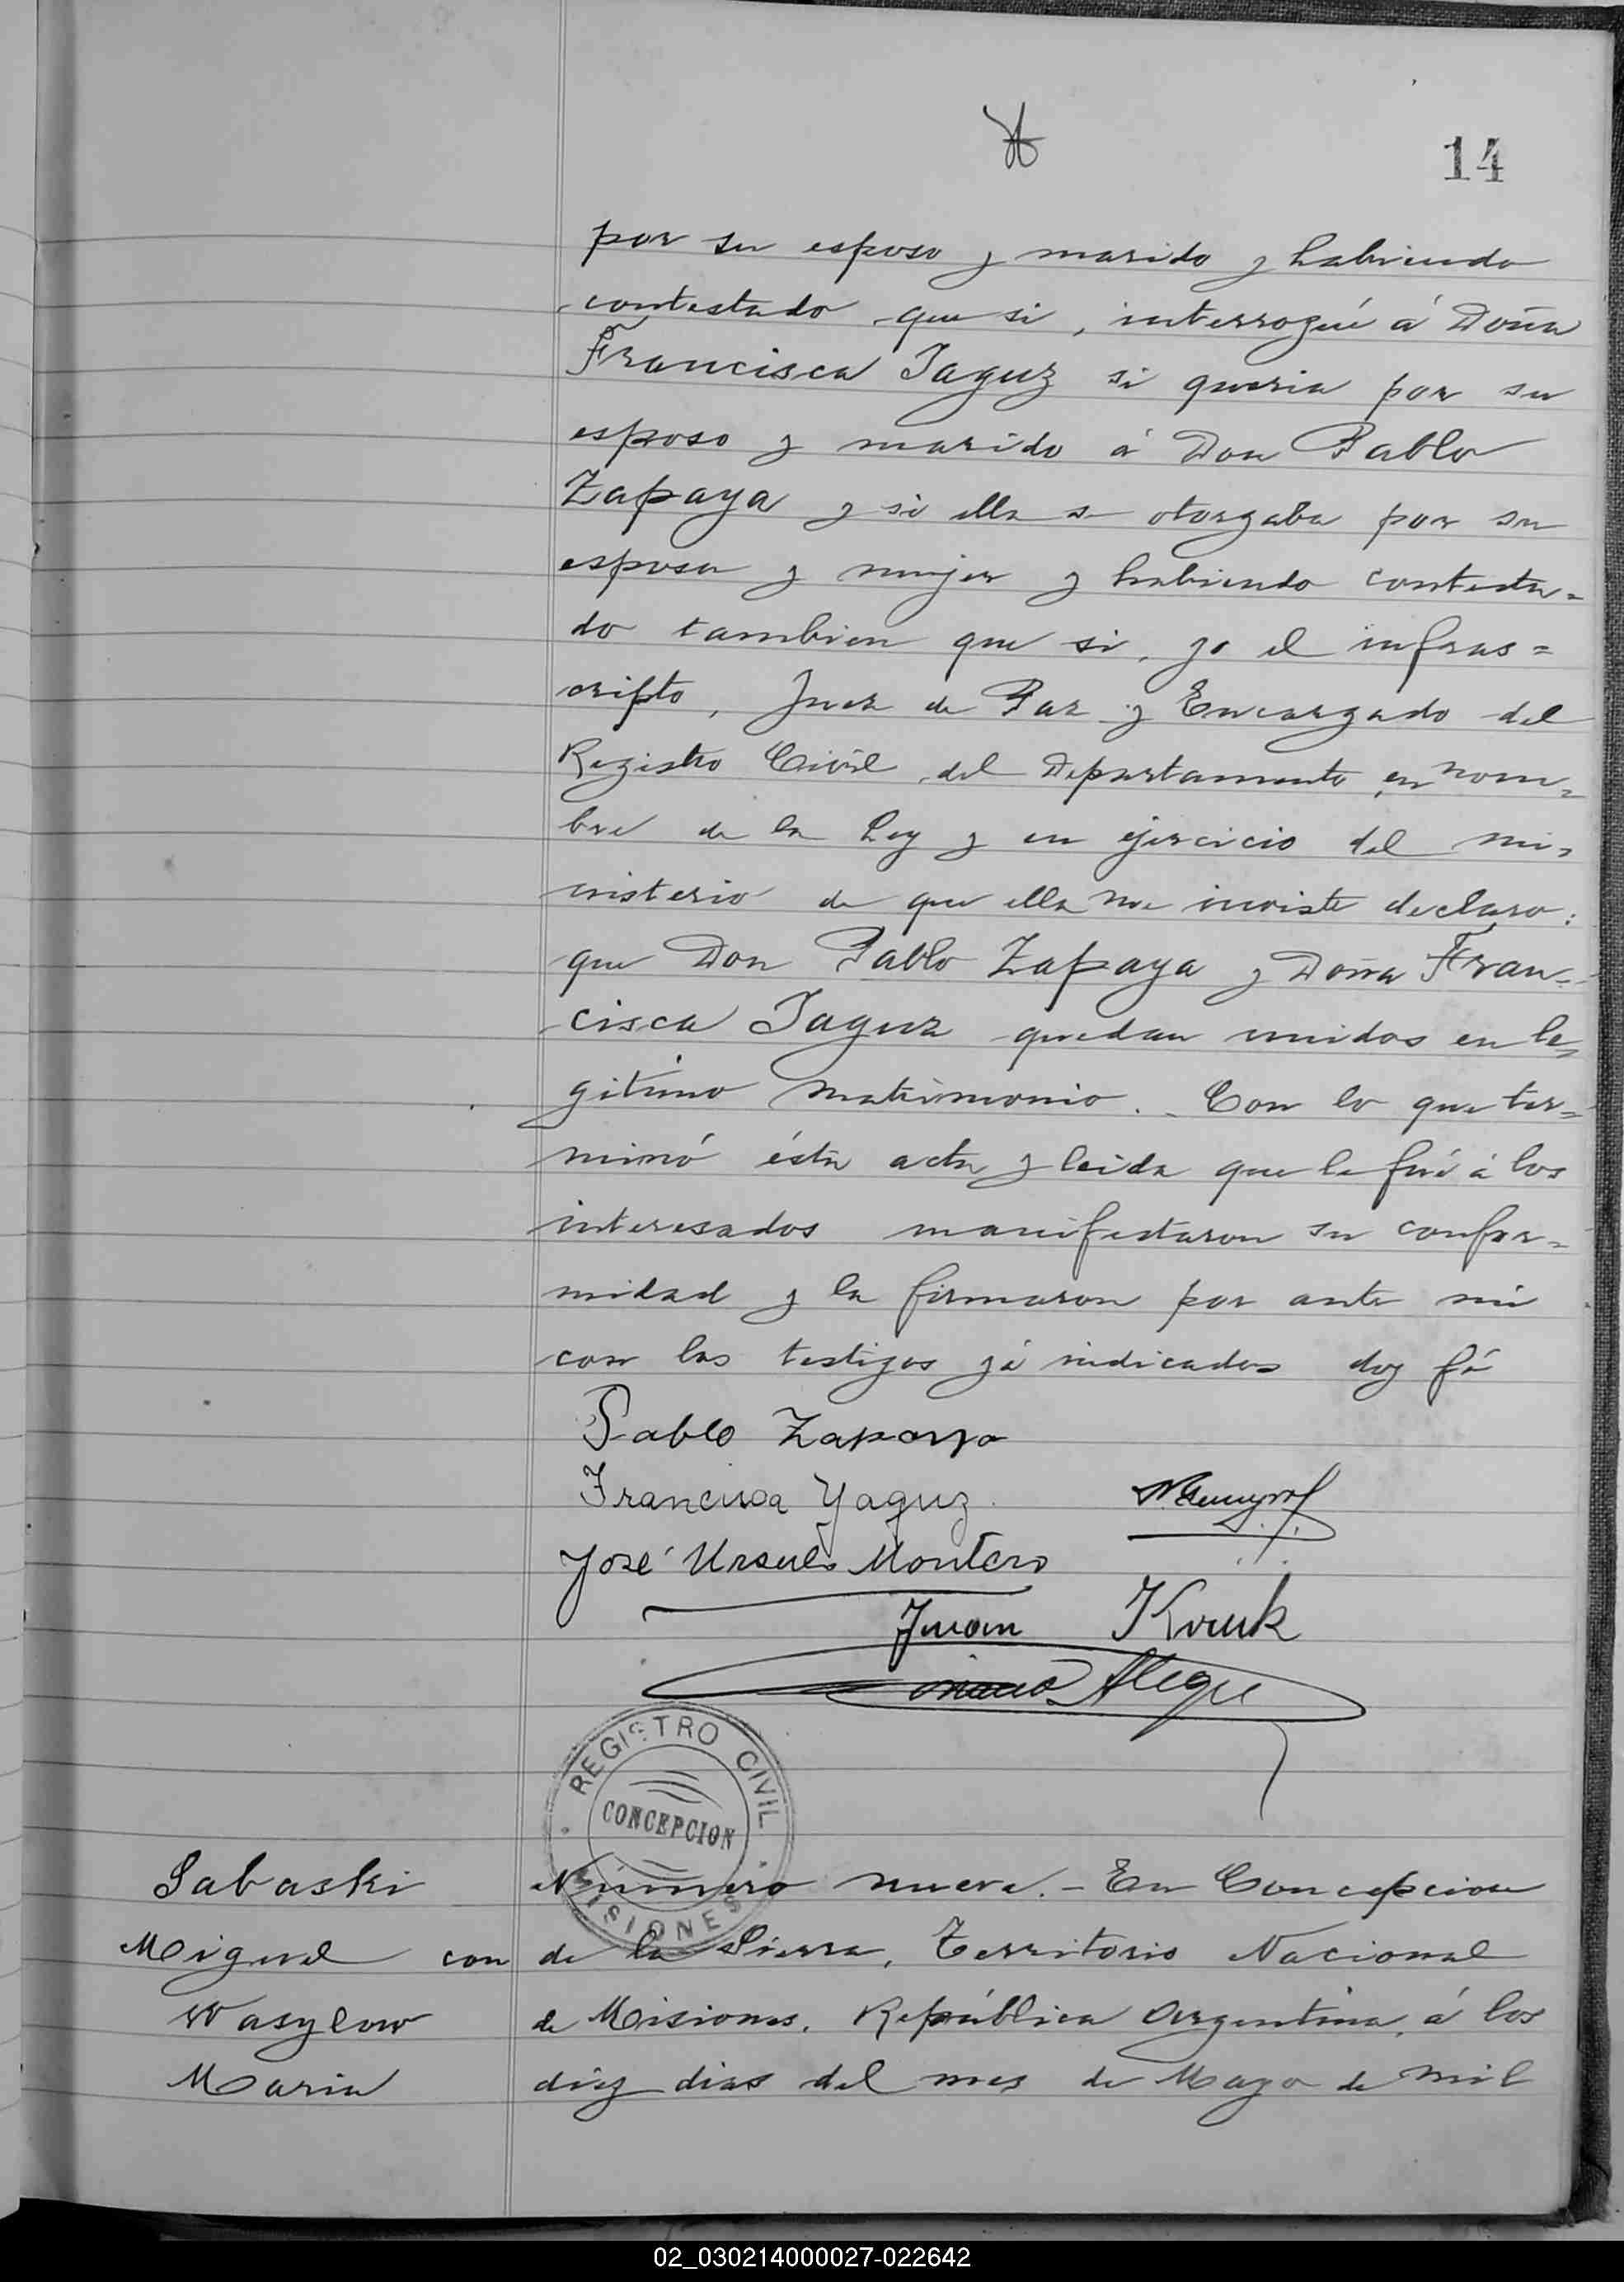 14
por su esposo y marido y habiendo
contestado que si, interrogué á Doña
Francisca Jaguz si queria por su
esposo y marido á Don Pablo
Zapaya y si ella se otorgaba por su
esposa y mujer y habiendo contesta=
do tambien que si, yo el infras=
cripto, Juez de Paz y Encargado del
Registro Civil del Departamento en nom=
bre de la Ley y en ejercicio del mi=
nisterio de que ella me inviste declaro:
que Don Pablo Zapaya y Doña Fran=
cisca Jaguz quedan unidos en le=
gitimo matrimonio. - Con lo que ter=
minó ésta acta y leida que le fué á los
interesados manifestaron su confor=
midad y la firmaron por ante mi
con los testigos yá indicados doy fé
Pablo Zapaya
Francisca Yaguz
José Ursulo Montero
Juan Kruk
Alegre
REGISTRO CIVIL
CONCEPCION
MISIONES
Sabaski
Miguel con
Wasylow
Maria
Número nueve. - En Concepcion
de la Sierra, Territorio Nacional
de Misiones, República Argentina, á los
diez dias del mes de Mayo de mil
02_030214000027-022642